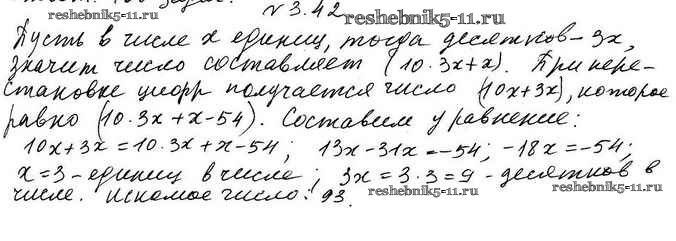 №3.42
reshebnik5-11.ru
Пусть в числе x единиц, тогда десятков – 3x,
значит число составляет (10·3x+x). При пере-
становке цифр получается число (10x+3x), которое
равно (10·3x+x-54). Составим уравнение:
10x+3x=10·3x+x-54; 13x-31x=-54; -18x=-54;
x=3 - единиц в числе; 3x=3·3=9 - десятков в
числе. Искомое число: 93.
reshebnik5-11.ru
reshebnik5-11.ru
reshebnik5-11.ru